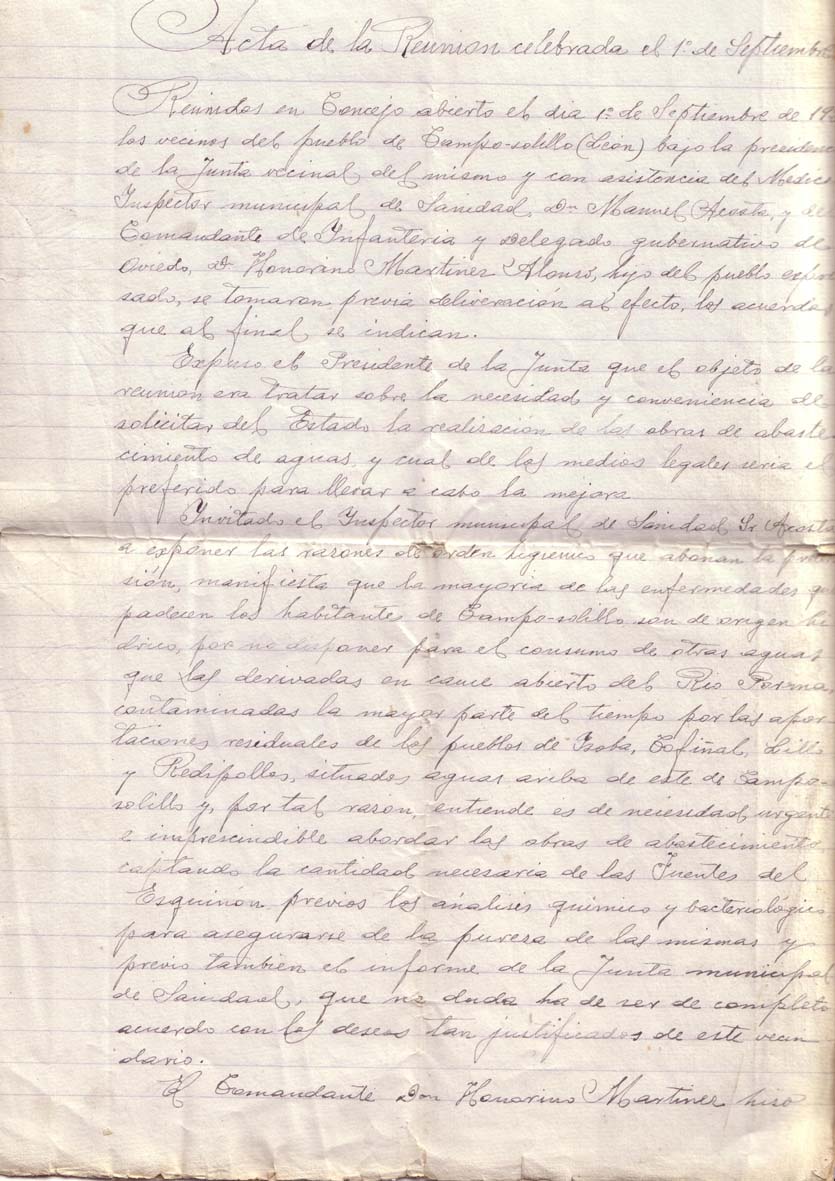 Acta de la Reunion celebrada el 1º de Septiembre
Reunidos en Concejo abierto el dia 1º de Septiembre de 19
los vecinos del pueblo de Campo-solillo (León) bajo la presidenc
de la Junta vecinal del mismo y con asistencia del Medico
Inspector municipal de Sanidad, Dn Manuel Acosta, y de
Comandante de Infanteria y Delegado gubernativo de
Oviedo, D. Honorino Martinez Alonso, hijo del pueblo expre
sado, se tomaron previa deliveración al efecto, los acuerdos
que al final se indican.
Expuso el Presidente de la Junta que el objeto de la
reunion era tratar sobre la necesidad y conveniencia de
solicitar del Estado la realización de las obras de abaste
cimiento de aguas, y cual de los medios legales seria el
preferido para llevar a cabo la mejora
Invitado el Inspector municipal de Sanidad Sr Acosta
a exponer las razones de orden higienico que abonan la
sión, manifiesta que la mayoria de las enfermedades qu
padecen los habitantes de Campo-solillo son de origen hi
drico, por no disponer para el consumo de otras aguas
que las derivadas en cauce abierto del Rio Porma
contaminadas la mayor parte del tiempo por las apor
taciones residuales de los pueblos de Isoba, Cofiñal, Lillo
y Redipollos, situados aguas ariba de este de Campo-
solillo y, por tal razon, entiende es de necesidad urgente
e imprescindible abordar las obras de abastecimiento
captando la cantidad necesaria de las Fuentes del
Esquinon previos los análisis quimico y bacteriológico
para asegurarse de la pureza de las mismas y
previo tambien el informe de la Junta municipal
de Sanidad, que no duda ha de ser de completo
acuerdo con los deseos tan justificados de este vecin
dario.
El Comandante Don Honorino Martinez hizo